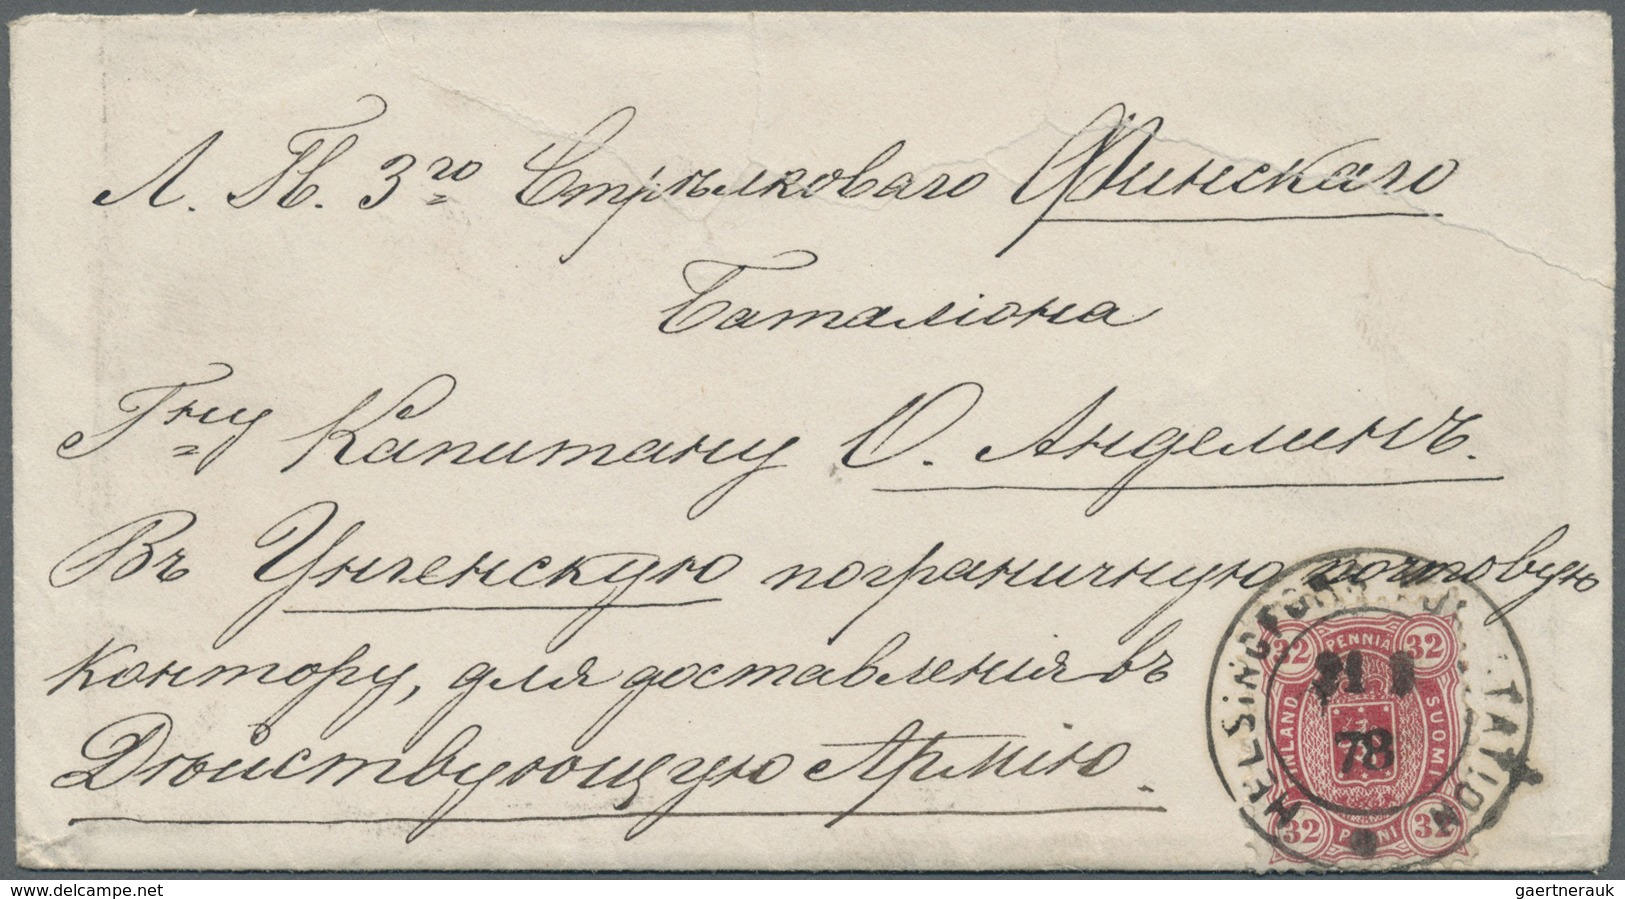 Л. П. 3го Стрѣлковаго Финскаго
Баталіона
Гну Капитану О. Анделинъ.
Въ Унгенскую пограничную почтовую
контору, для доставленія въ
Дѣйствующую Армію.
HELSINGFORS STATION
78
32 PENNIÄ 32
FINLAND SUOMI
32 PENNI 32
www.delcampe.net
gaertnerauk